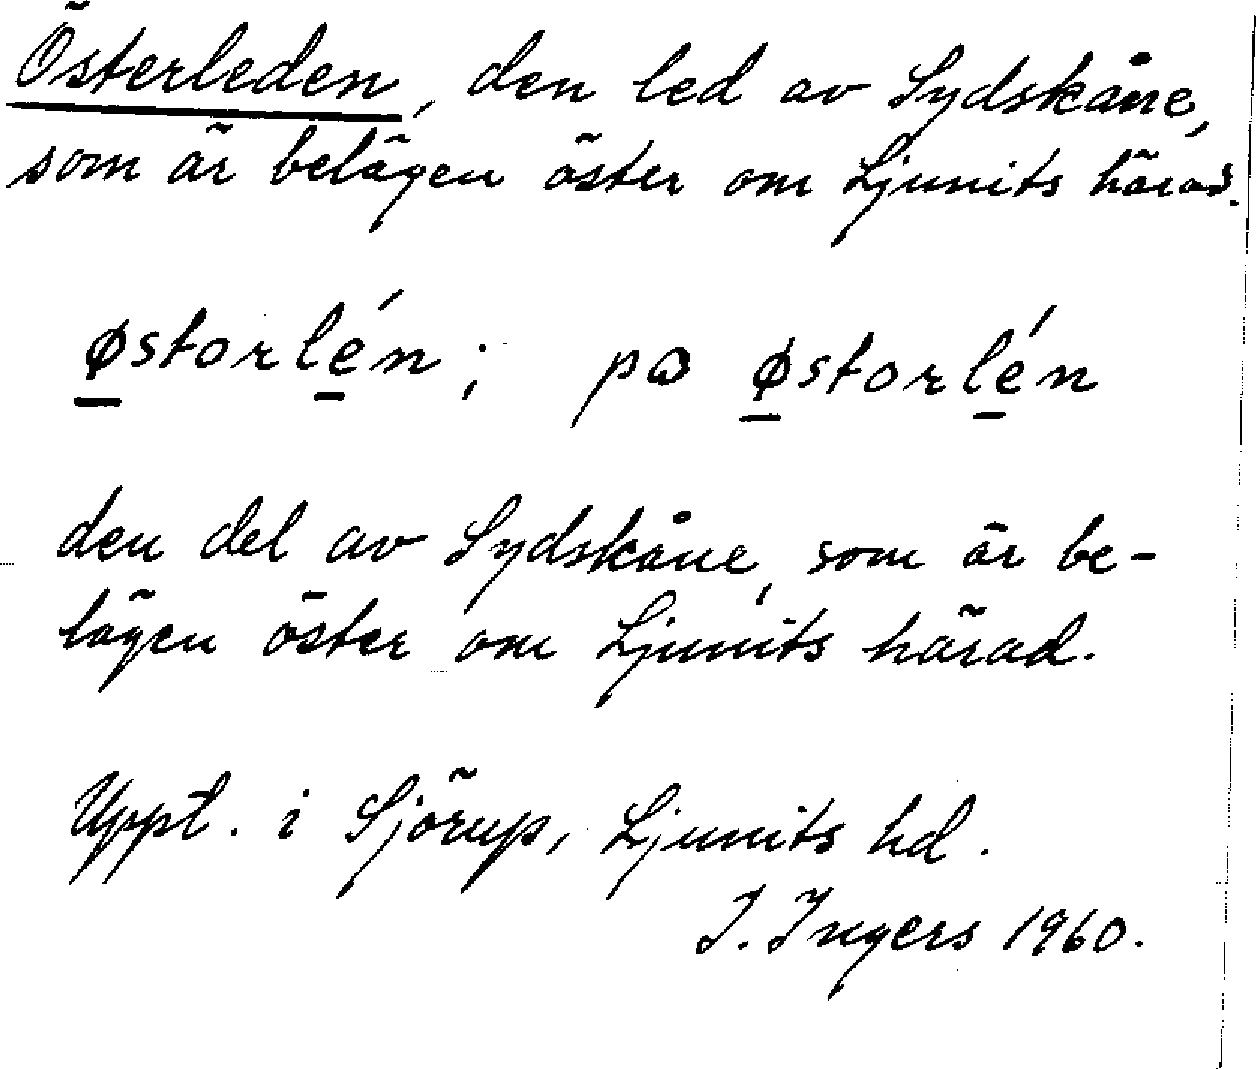 Österleden, den led av Sydskåne,
som är belägen öster om Ljunits härad.
østorlén; pɷ østorlén
den del av Sydskåne, som är be-
lägen öster om Ljunits härad.
Uppt. i Sjörup, Ljunits hd.
I. Ingers 1960.